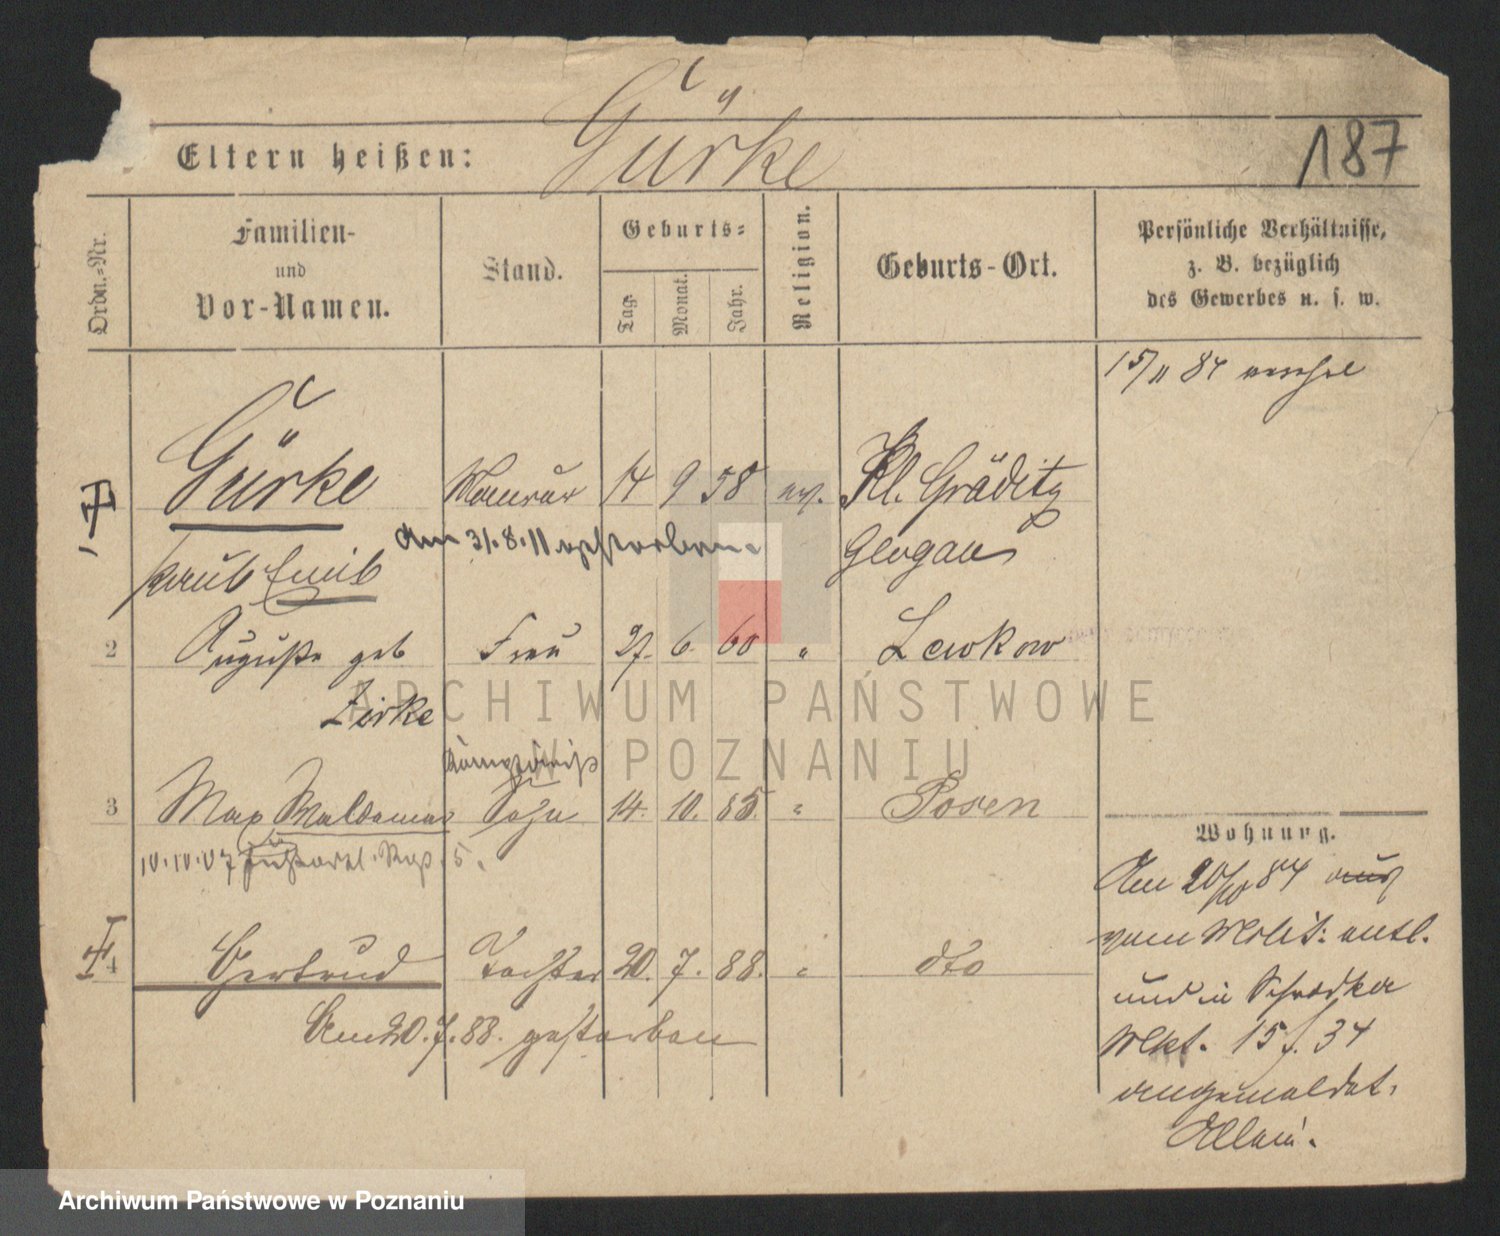 Gürke
Eltern heißen:
187
Ordn.-Nr.
Familien-
und
Vor-Namen.
Stand.
Geburts-
Tag.
Monat.
Jahr.
Religion.
Geburts-Ort.
Persönliche Verhältnisse,
z. B. bezüglich
des Gewerbes u. s. w.
15/11 84
Gürke Maurer 14 9 58 ev. Kl. Gräditz
am 31.8.11 gestorben. Glogau
Emil
2 Auguste geb Frau 27. 6. 60 " Lewkow
Zirke
3 Max Waldemar Sohn 14. 10. 85. " Posen
10.10.07 Fußartl. Rgt. 5.
4 Gertrud Tochter 20. 7. 88. " dto
Am 20.7.88. gestorben
Wohnung.
Am 20/10 84
vom Milit: entl.
und in Schrodka
Mkt. 15 f. 34
angemeldet.
Allein.
ARCHIWUM PAŃSTWOWE
W POZNANIU
Archiwum Państwowe w Poznaniu